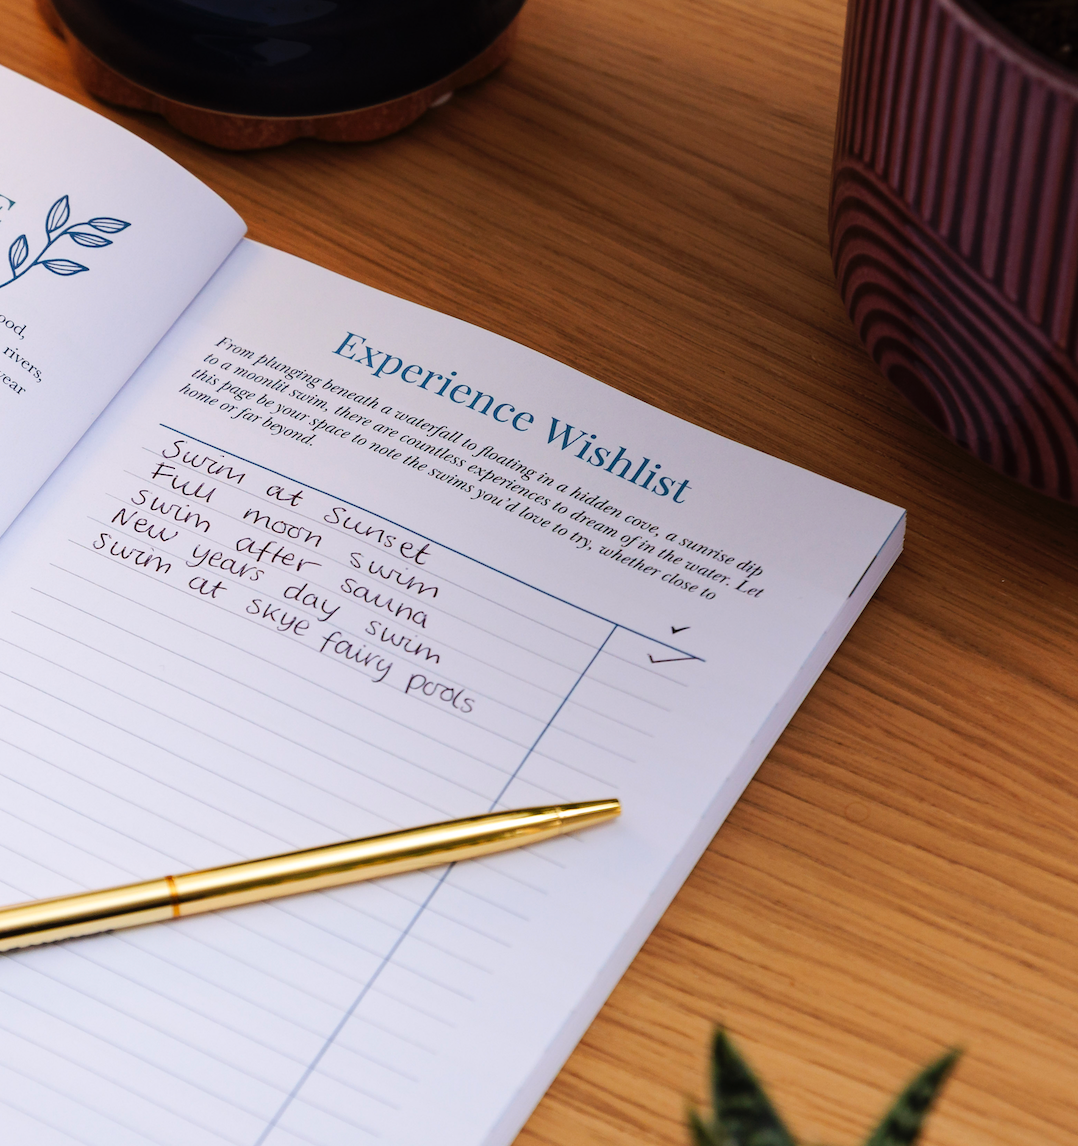 ood,
rivers,
year
Experience Wishlist
From plunging beneath a waterfall to floating in a hidden cove, a sunrise dip
to a moonlit swim, there are countless experiences to dream of in the water. Let
this page be your space to note the swims you'd love to try, whether close to
home or far beyond.
Swim at Sunset ✓
Full moon swim ✓
swim after sauna
New years day swim
swim at skye fairy pools